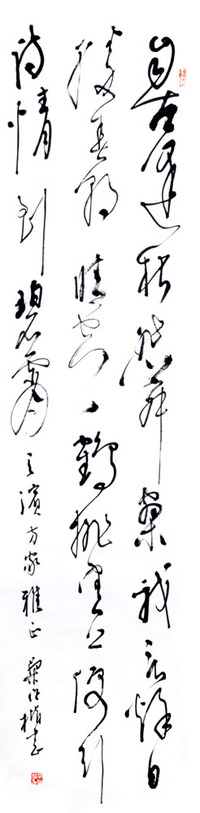 自古逢秋悲寂寥我言秋日
勝春朝晴空一鶴排雲上便引
詩情到碧霄 之濱方家雅正